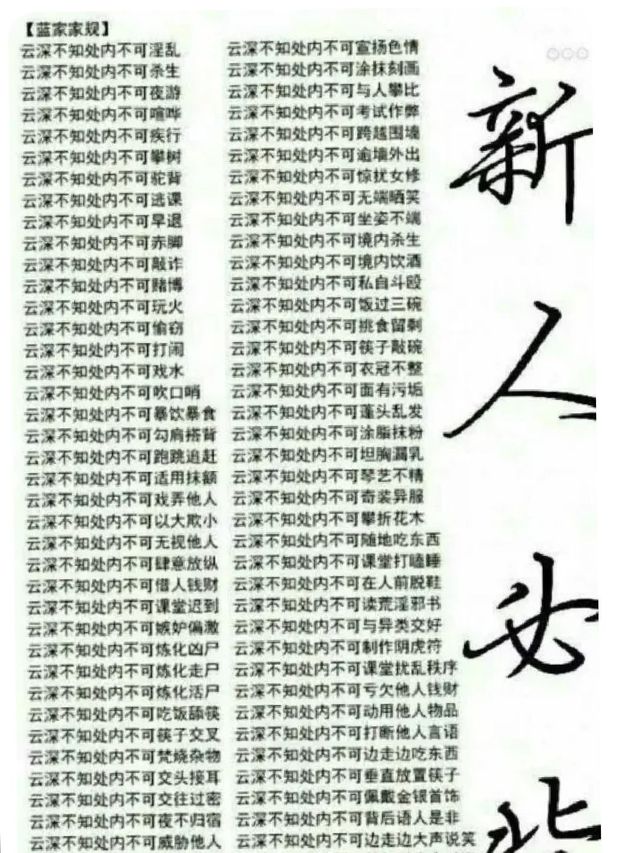 【蓝家家规】
云深不知处内不可淫乱
云深不知处内不可杀生
云深不知处内不可夜游
云深不知处内不可喧哗
云深不知处内不可疾行
云深不知处内不可攀树
云深不知处内不可驼背
云深不知处内不可逃课
云深不知处内不可早退
云深不知处内不可赤脚
云深不知处内不可敲诈
云深不知处内不可赌博
云深不知处内不可玩火
云深不知处内不可偷窃
云深不知处内不可打闹
云深不知处内不可戏水
云深不知处内不可吹口哨
云深不知处内不可暴饮暴食
云深不知处内不可勾肩搭背
云深不知处内不可跑跳追赶
云深不知处内不可适用抹额
云深不知处内不可戏弄他人
云深不知处内不可以大欺小
云深不知处内不可无视他人
云深不知处内不可肆意放纵
云深不知处内不可借人钱财
云深不知处内不可课堂迟到
云深不知处内不可嫉妒偏激
云深不知处内不可炼化凶尸
云深不知处内不可炼化走尸
云深不知处内不可炼化活尸
云深不知处内不可吃饭舔筷
云深不知处内不可筷子交叉
云深不知处内不可焚烧杂物
云深不知处内不可交头接耳
云深不知处内不可交往过密
云深不知处内不可夜不归宿
云深不知处内不可威胁他人
云深不知处内不可宣扬色情
云深不知处内不可涂抹刻画
云深不知处内不可与人攀比
云深不知处内不可考试作弊
云深不知处内不可跨越围墙
云深不知处内不可逾墙外出
云深不知处内不可惊扰女修
云深不知处内不可无端哂笑
云深不知处内不可坐姿不端
云深不知处内不可境内杀生
云深不知处内不可境内饮酒
云深不知处内不可私自斗殴
云深不知处内不可饭过三碗
云深不知处内不可挑食留剩
云深不知处内不可筷子敲碗
云深不知处内不可衣冠不整
云深不知处内不可面有污垢
云深不知处内不可蓬头乱发
云深不知处内不可涂脂抹粉
云深不知处内不可坦胸漏乳
云深不知处内不可琴艺不精
云深不知处内不可奇装异服
云深不知处内不可攀折花木
云深不知处内不可随地吃东西
云深不知处内不可课堂打瞌睡
云深不知处内不可在人前脱鞋
云深不知处内不可读荒淫邪书
云深不知处内不可与异类交好
云深不知处内不可制作阴虎符
云深不知处内不可课堂扰乱秩序
云深不知处内不可亏欠他人钱财
云深不知处内不可动用他人物品
云深不知处内不可打断他人言语
云深不知处内不可边走边吃东西
云深不知处内不可垂直放置筷子
云深不知处内不可佩戴金银首饰
云深不知处内不可背后语人是非
云深不知处内不可边走边大声说笑
新人必背